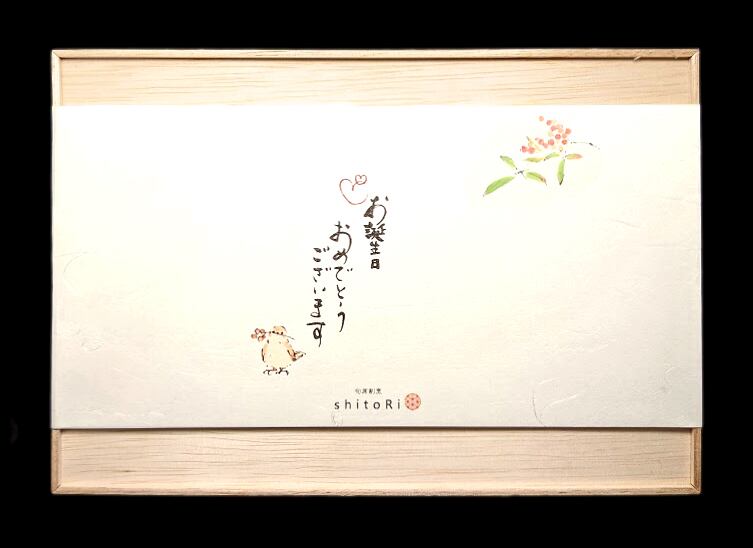 お誕生日
おめでとう
ございます
旬菜割烹
shitoRi